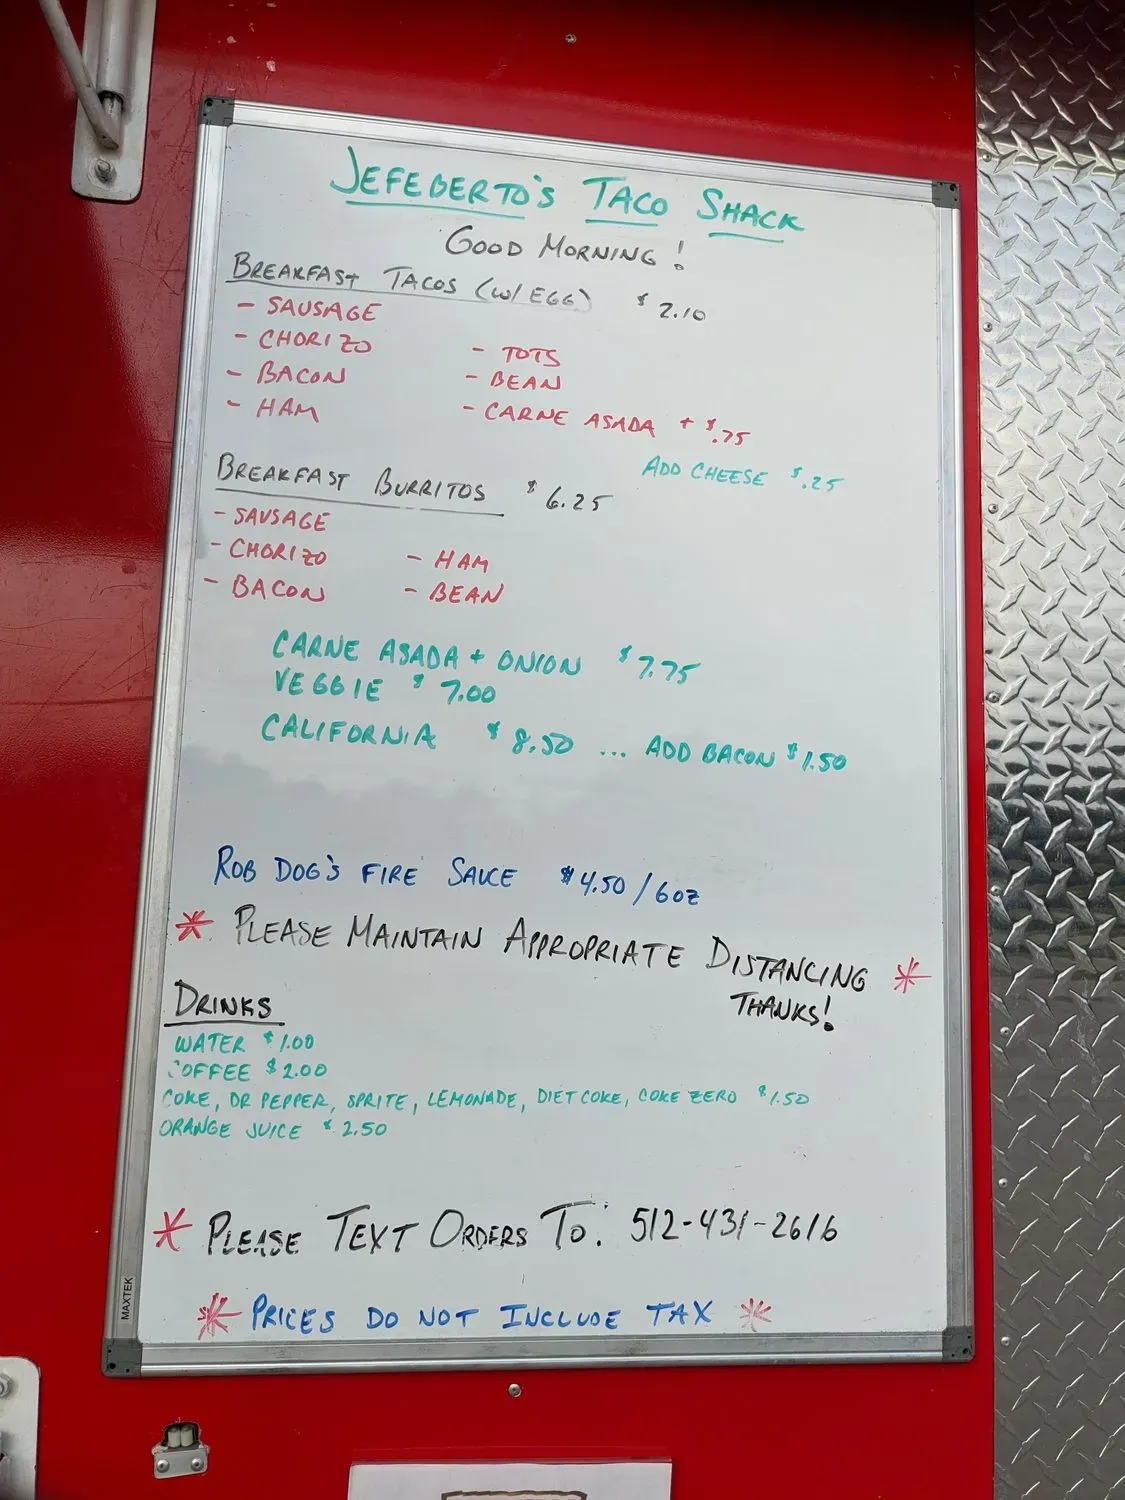 JEFEBERTO'S TACO SHACK
GOOD MORNING!
BREAKFAST TACOS (W/ EGG) $2.10
- SAUSAGE
- CHORIZO - TOTS
- BACON - BEAN
- HAM - CARNE ASADA + $.75
ADD CHEESE $.25
BREAKFAST BURRITOS $6.25
- SAUSAGE
- CHORIZO - HAM
- BACON - BEAN
CARNE ASADA + ONION $7.75
VEGGIE $7.00
CALIFORNIA $8.50 ... ADD BACON $1.50
ROB DOG'S FIRE SAUCE $4.50/6OZ
* PLEASE MAINTAIN APPROPRIATE DISTANCING *
THANKS!
DRINKS
WATER $1.00
COFFEE $2.00
COKE, DR PEPPER, SPRITE, LEMONADE, DIET COKE, COKE ZERO $1.50
ORANGE JUICE $2.50
* PLEASE TEXT ORDERS TO: 512-431-2616
* PRICES DO NOT INCLUDE TAX *
MAXTEK